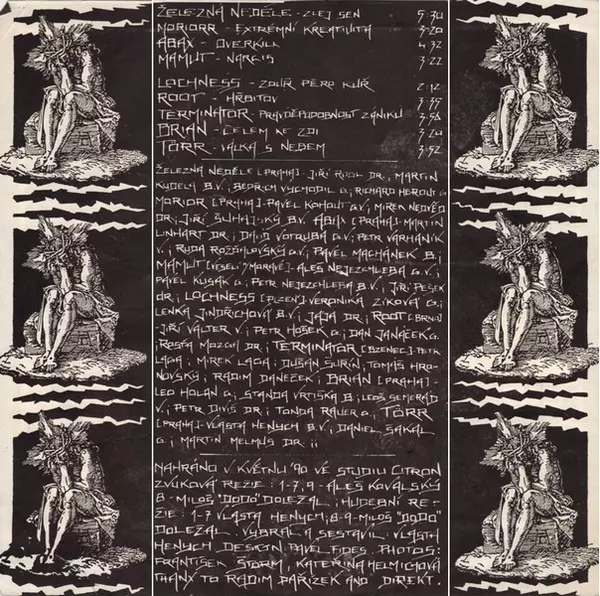 ŽELEZNÁ NEDĚLE - ZLEJ SEN 5:30
MORIORR - EXTRÉMNÍ KREATIVITA 3:20
ABAX - OVERKILL 4:32
MAMUT - NARCIS 3:22
LOCHNESS - ZOUŘ PÉRO KUŘ 2:12
ROOT - HŘBITOV
TERMINATOR - PRAVDĚPODOBNOST ZÁNIKU 3:58
BRIAN - ČELEM KE ZDI 3:20
TÖRR - VÁLKA S NEBEM 3:52
ŽELEZNÁ NEDĚLE [PRAHA]: JIŘÍ DR; MARTIN
B.V.; BEDŘICH VYCHODIL G; RICHARD HEROUT G
MORIOR [PRAHA]: PAVEL KOHOUT G.V; MIREK NEDVĚD
DR; JIŘÍ B.V. ABAX [PRAHA]: MARTIN
LINHART DR; DAVID VOTRUBA G.V; PETR VARHANÍK
V; RUDA G.V; PAVEL MACHÁNEK B;
MAMUT ALEŠ NEJEZCHLEBA G.V;
PAVEL KUSÁK G; PETR NEJEZCHLEBA B.V; JIŘÍ PEŠEK
DR; LOCHNESS [PLZEŇ] VERONIKA ZÍKOVÁ G;
LENKA JINDŘICHOVÁ B.V; JAJA DR; ROOT [BRNO]
JIŘÍ VALTER V; PETR HOŠEK G; DAN JANÁČEK G;
ROSŤA MOZGA DR; TERMINATOR [BZENEC]: PETR
LAGA; MIREK LAGA; DUŠAN ŠURÍN; TOMÁŠ HRO-
NOVSKÝ; RADIM DANEČEK; BRIAN [PRAHA]-
LEO HOLAN G; STANDA VRTIŠKA B; LEOŠ SEMERÁD
V; PETR DIVIŠ DR; TONDA RAUER G; TÖRR
[PRAHA]: VLASTA HENYCH B.V; DANIEL ŠAKAL
G; MARTIN MELMUS DR.
NAHRÁNO V KVĚTNU '90 VE STUDIU CITRON
ZVUKOVÁ REŽIE: 1-7, 9 - ALEŠ KOVALSKÝ
8 - MILOŠ "DODO" DOLEŽAL; HUDEBNÍ RE-
ŽIE: 1-7 VLASTA HENYCH; 8-9 - MILOŠ "DODO"
DOLEŽAL. VYBRAL A SESTAVIL: VLASTA
HENYCH DESIGN: PAVEL FIDES. PHOTOS:
FRANTIŠEK ŠTORM, KATEŘINA HELMICHOVÁ
THANX TO RADIM PAŘÍZEK AND DIREKT.